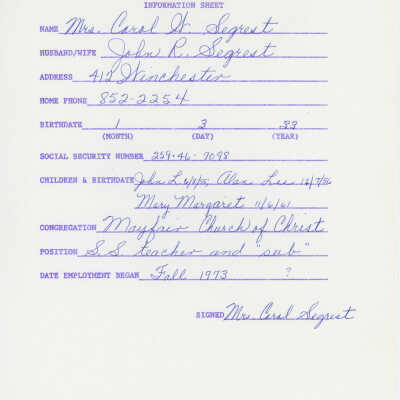 INFORMATION SHEET
NAME Mrs. Carol W. Segrest
HUSBAND/WIFE John R. Segrest
ADDRESS 412 Winchester
HOME PHONE 852-2254
BIRTHDATE 1 3 33
(MONTH) (DAY) (YEAR)
SOCIAL SECURITY NUMBER 259-46-7098
CHILDREN & BIRTHDATE John L. Alan Lee
Mary Margaret 11/6/61
CONGREGATION Mayfair Church of Christ
POSITION S.S. teacher and "sub"
DATE EMPLOYMENT BEGAN Fall 1973 ?
SIGNED Mrs. Carol Segrest